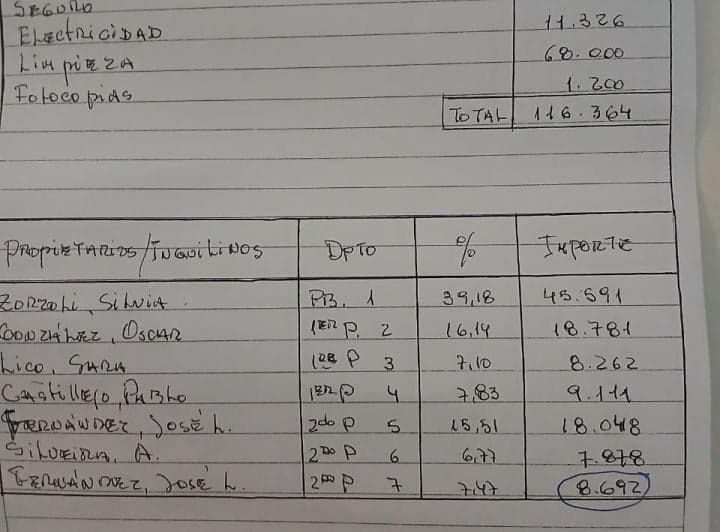 SEGURO
ELECTRICIDAD 11.326
LIMPIEZA 68.000
FOTOCOPIAS 1.200
TOTAL 116.364
PROPIETARIOS/INQUILINOS DPTO % IMPORTE
ZORZOLI, SILVIA. PB. 1 39,18 45.591
GONZÁLEZ, OSCAR 1ER P. 2 16,14 18.781
LICO, SARA 1ER P 3 7,10 8.262
CASTILLEJO, PABLO 1ER P 4 7,83 9.111
FERNÁNDEZ, JOSÉ L. 2DO P 5 15,51 18.048
SILVEIRA, A. 2DO P 6 6,77 7.878
FERNÁNDEZ, JOSÉ L. 2DO P 7 7,47 8.692